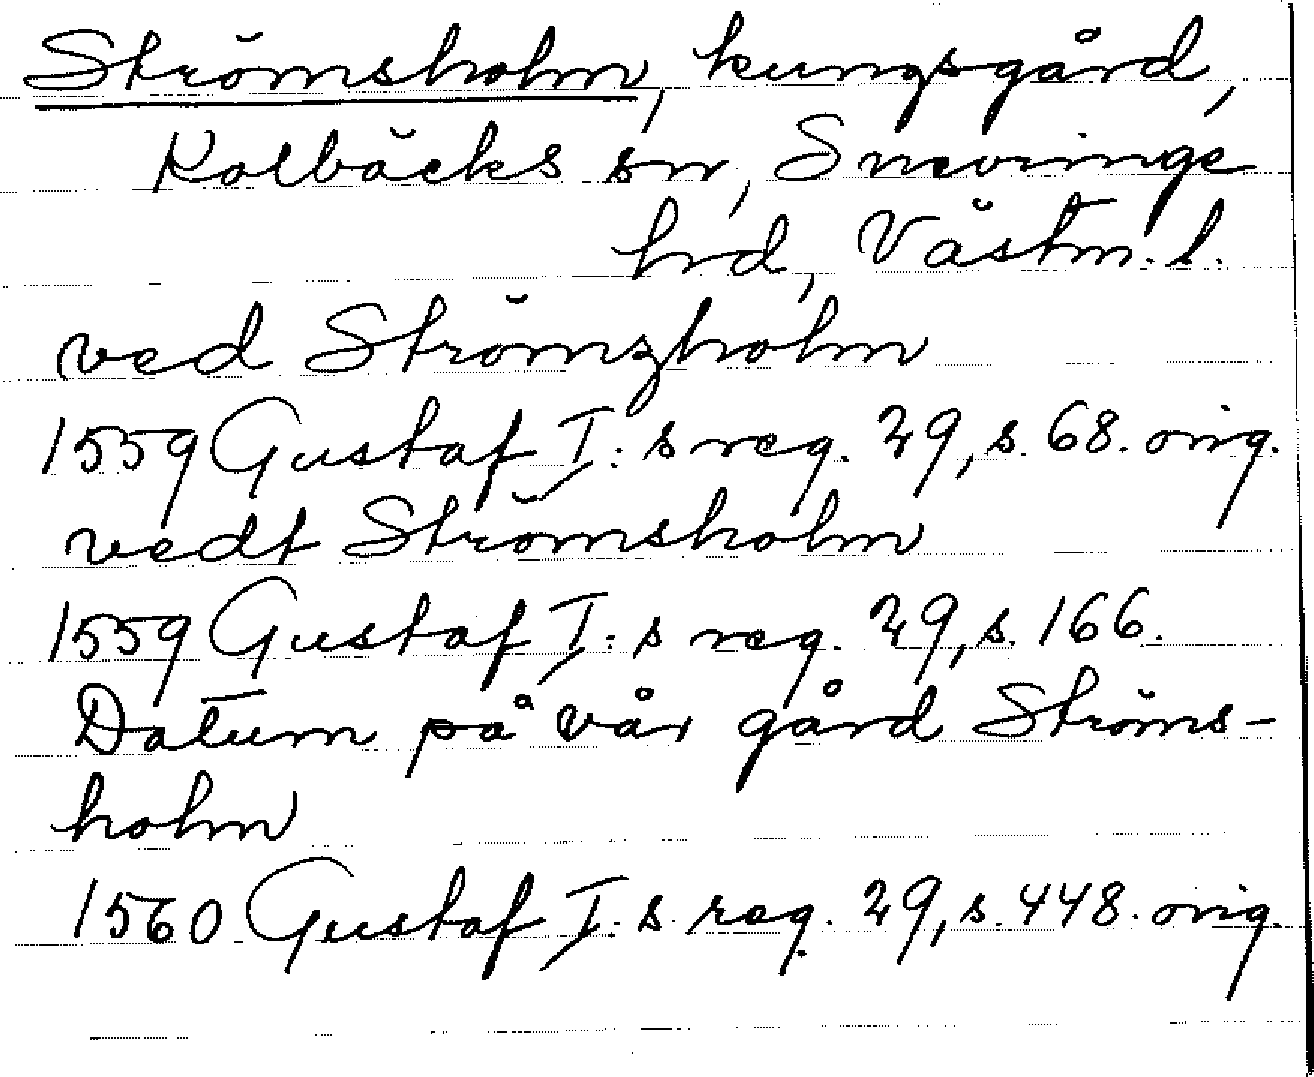 Strömsholm, kungsgård,
Kolbäcks sn, Snevringe
hrd, Västm. l.
ved Strömzholm
1559 Gustaf I:s reg. 29, s. 68. orig.
vedt Strömsholm
1559 Gustaf I:s reg. 29, s. 166.
Datum på vår gård Ströms-
holm
1560 Gustaf I:s reg. 29, s. 448. orig.